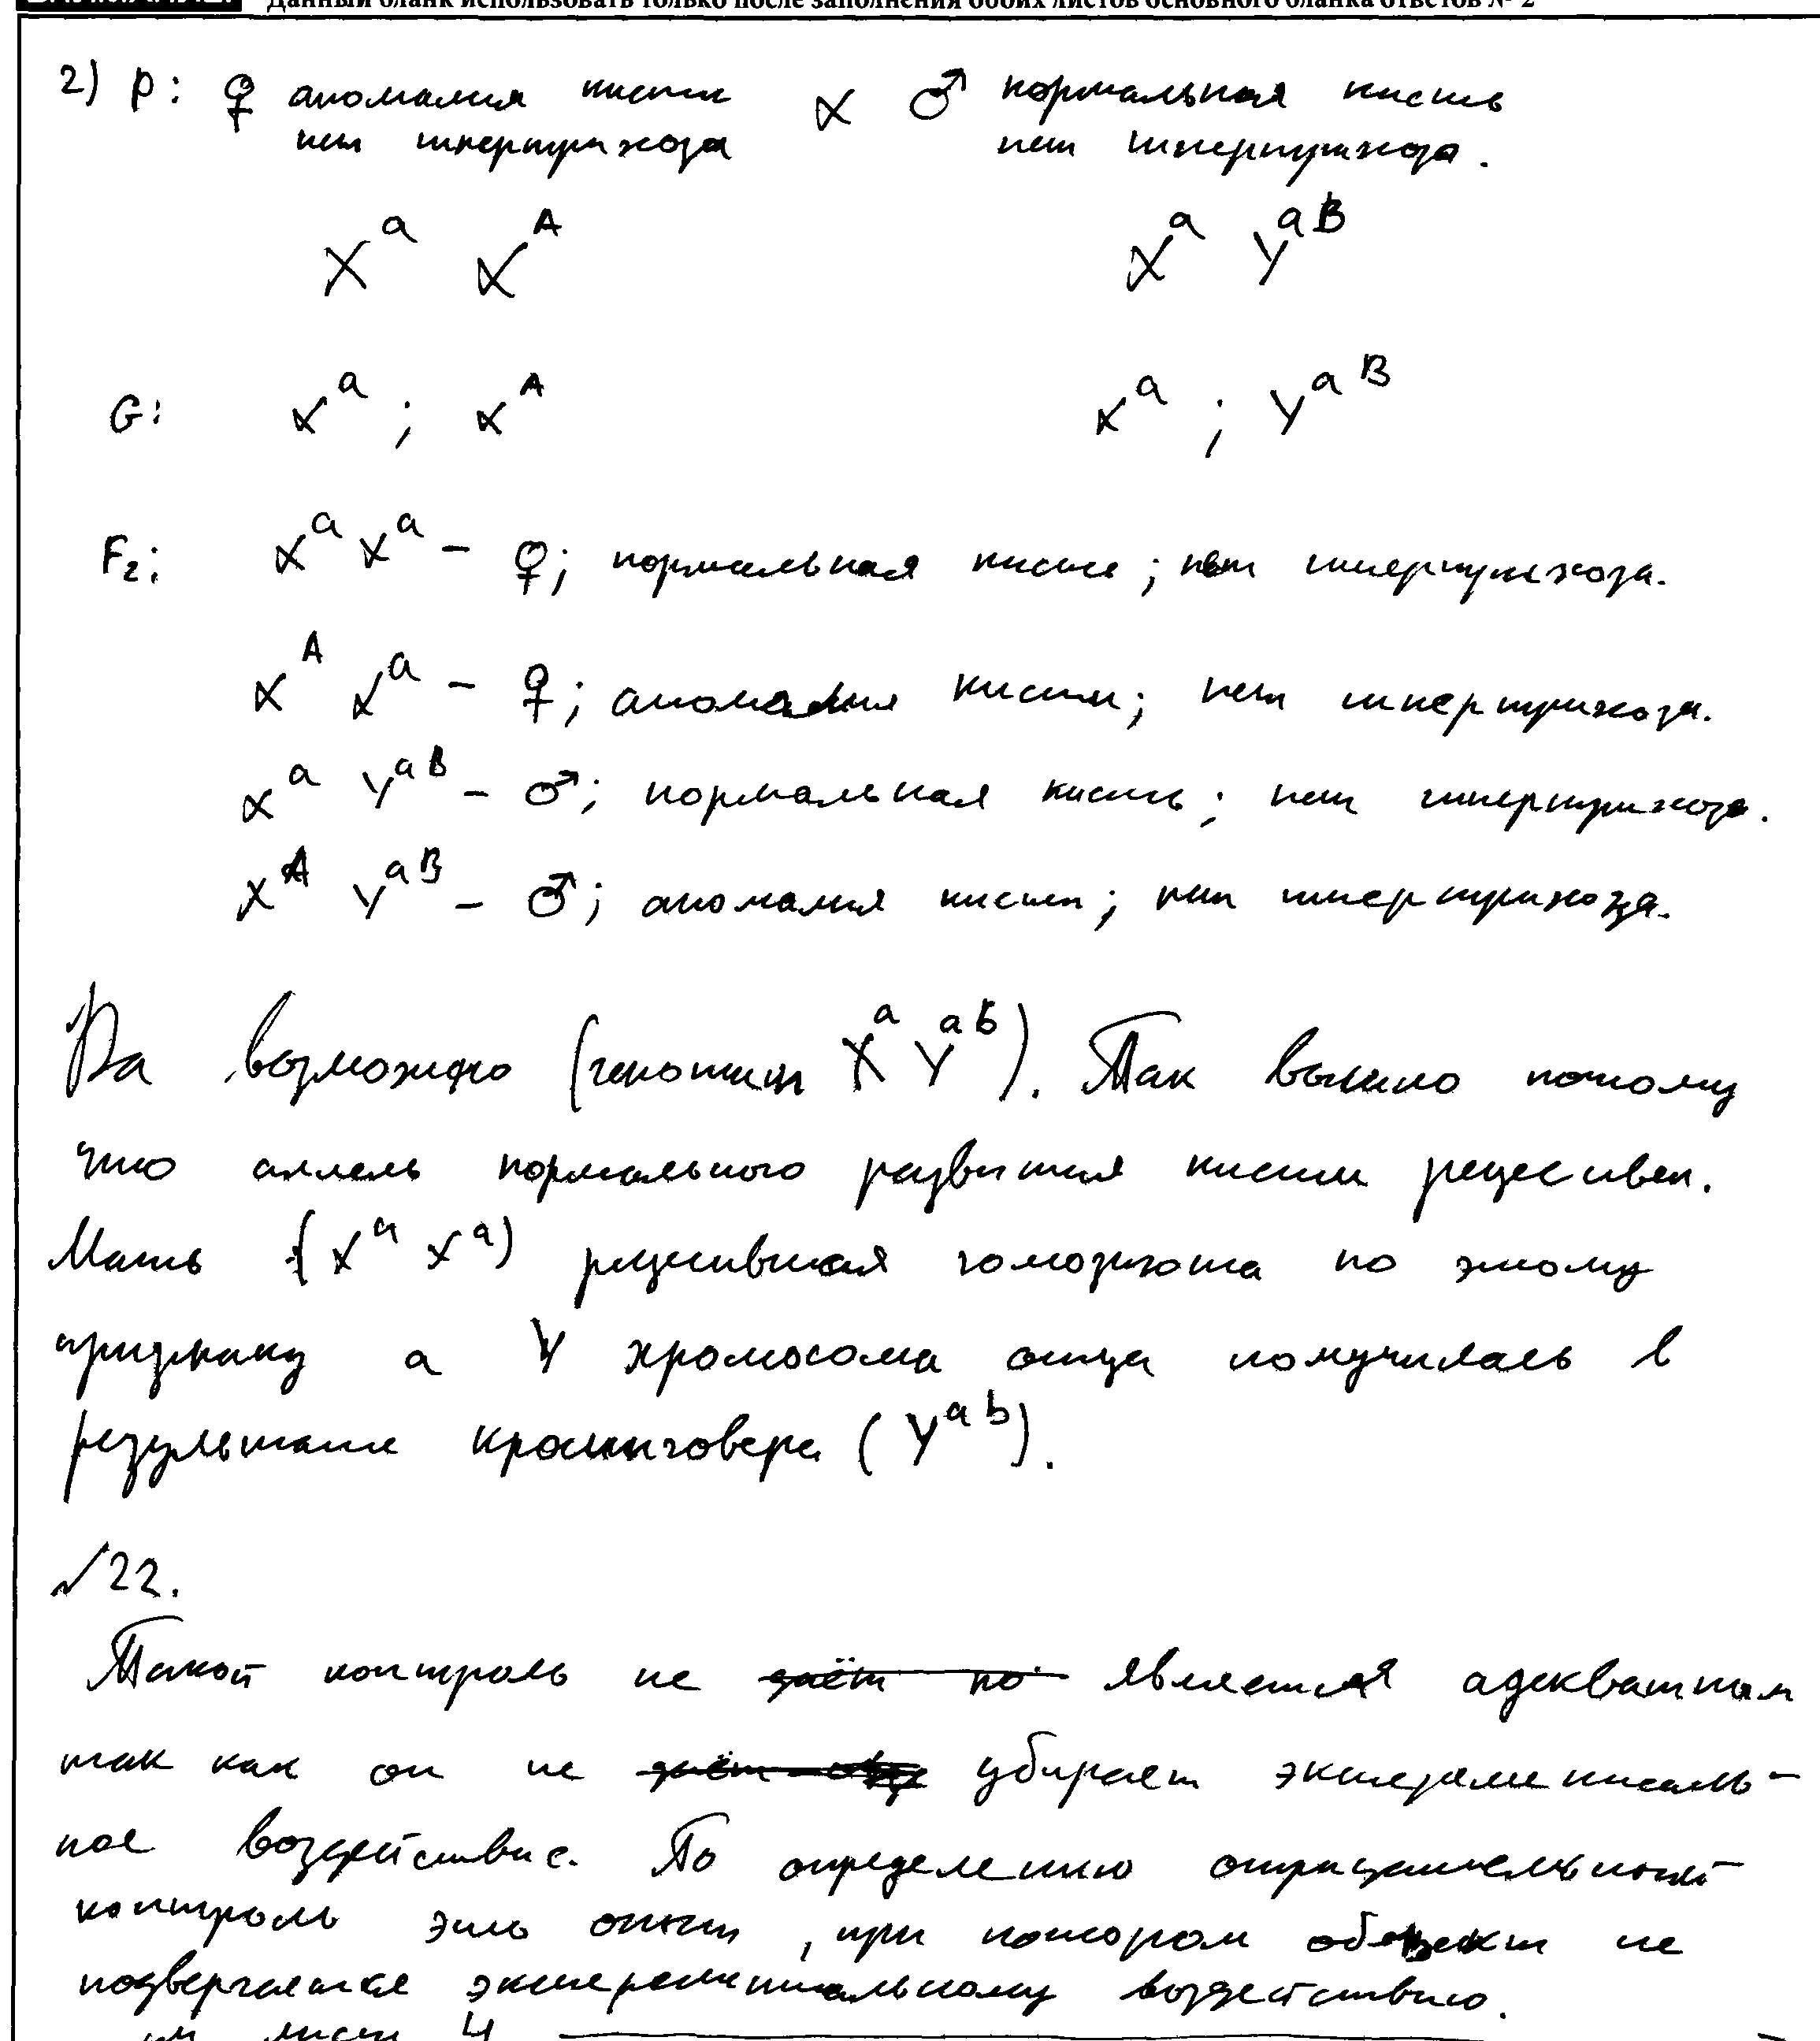 Данный бланк использовать только после заполнения обоих листов основного бланка ответов № 2
2) P: ♀ аномалия кисти × ♂ нормальная кисть
нет гипертрихоза нет гипертрихоза.
X^a X^A X^a Y^aB
G: X^a ; X^A X^a ; Y^aB
F2: X^a X^a - ♀; нормальная кисть; нет гипертрихоза.
X^A X^a - ♀; аномалия кисти; нет гипертрихоза.
X^a Y^aB - ♂; нормальная кисть; нет гипертрихоза.
X^A Y^aB - ♂; аномалия кисти; нет гипертрихоза.
Да возможно (генотип X^a Y^ab). Так вышло потому
что аллель нормального развития кисти рецесивен.
Мать (X^a X^a) рецесивная гомозигота по этому
признаку а Y хромосома отца получилась в
результате кроссинговера (Y^ab).
√22.
Такой контроль не является адекватным
так как он не убирает эксперименталь-
ное воздействие. По определению отрицательный
контроль это опыт, при котором объект не
подвергается экспериментальному воздействию.
лист 4